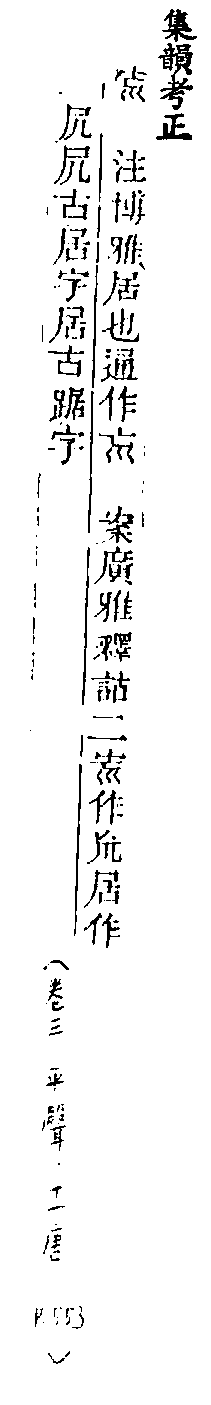 集韻考正
宺 注博雅居也通作巟 案廣雅釋詁二巟作居作
凥凥古居字居古踞字
(卷三 平聲.十一唐 P.553)